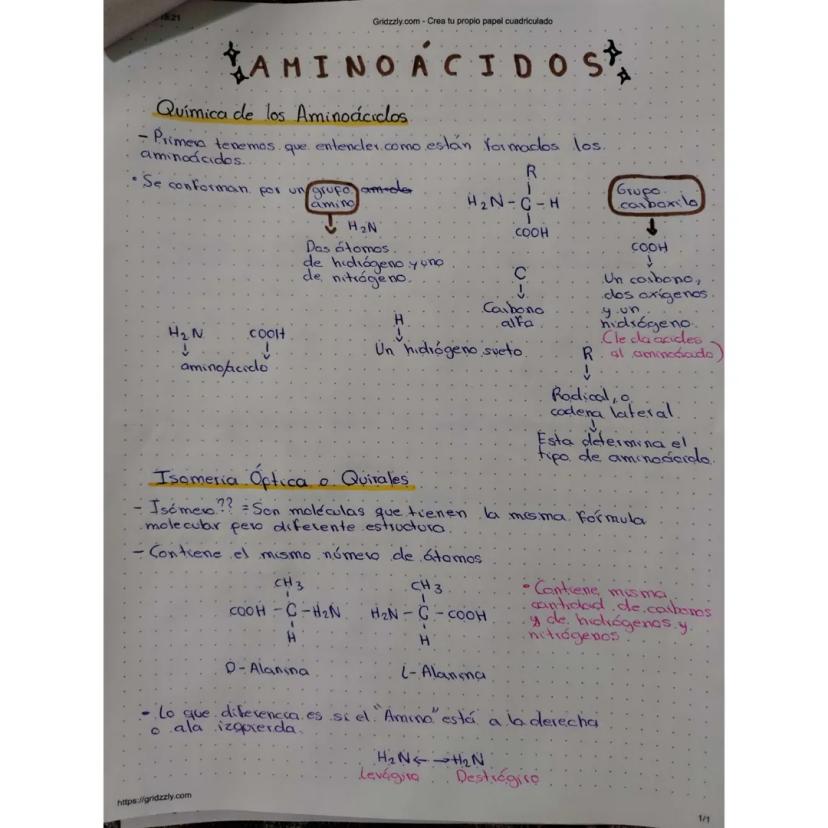 18:21
Gridzzly.com - Crea tu propio papel cuadriculado
AMINOÁCIDOS
Química de los Aminoácidos
- Primero tenemos que entender como están formados los
aminoácidos.
• Se conforman por un grupo
amino
H₂N
Dos átomos
de hidrógeno y uno
de nitrógeno.
R
H₂N - C - H
COOH
Grupo
carboxilo
COOH
Un carbono,
dos oxígenos
y un
hidrógeno
(le da acides
al aminoácido)
C
Carbono
alfa
H
Un hidrógeno suelto
H₂N COOH
aminoácido
R
Radical, o
cadena lateral
Esta determina el
tipo de aminoácido.
Isomeria Óptica o Quirales
- Isómero?? = Son moléculas que tienen la misma fórmula
molecular pero diferente estructura
- Contiene el mismo número de átomos
CH₃
COOH - C - H₂N
H
D-Alanina
CH₃
H₂N - C - COOH
H
L-Alanina
• Contiene misma
cantidad de carbonos
y de hidrógenos y
nitrógenos
- Lo que diferencia es si el "Amino" está a la derecha
o a la izquierda.
H₂N ← → H₂N
Levógiro Destrógiro
https://gridzzly.com
1/1